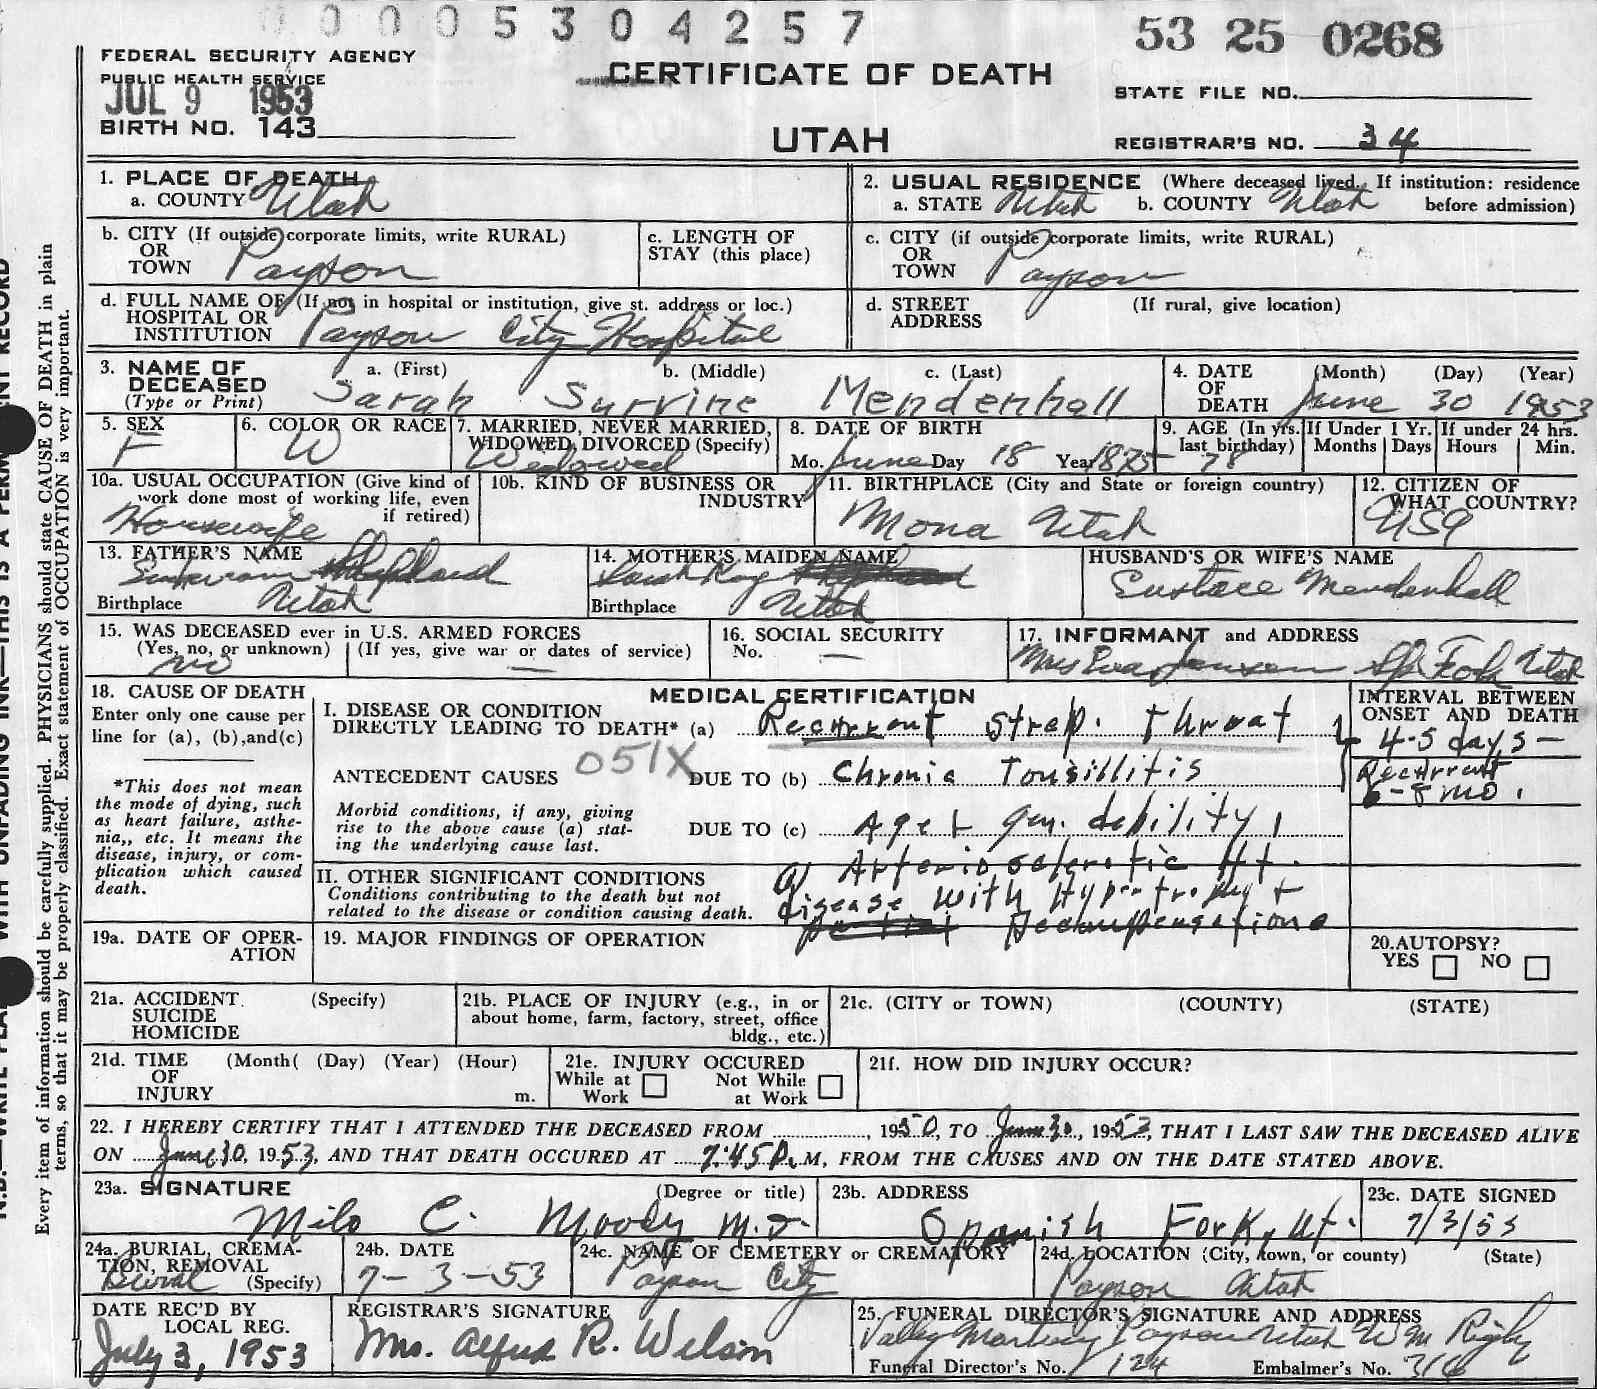 0 0 0 0 5 3 0 4 2 5 7
53 25 0268
FEDERAL SECURITY AGENCY
PUBLIC HEALTH SERVICE
JUL 9 1953
BIRTH NO. 143
CERTIFICATE OF DEATH
UTAH
STATE FILE NO.
REGISTRAR'S NO. 34
1. PLACE OF DEATH
a. COUNTY Utah
b. CITY (If outside corporate limits, write RURAL)
OR
TOWN Payson
c. LENGTH OF
STAY (this place)
d. FULL NAME OF (If not in hospital or institution, give st. address or loc.)
HOSPITAL OR
INSTITUTION Payson City Hospital
2. USUAL RESIDENCE (Where deceased lived. If institution: residence
a. STATE Utah b. COUNTY Utah before admission)
c. CITY (if outside corporate limits, write RURAL)
OR
TOWN Payson
d. STREET (If rural, give location)
ADDRESS
3. NAME OF a. (First) b. (Middle) c. (Last)
DECEASED
(Type or Print) Sarah Survine Mendenhall
4. DATE (Month) (Day) (Year)
OF
DEATH June 30 1953
5. SEX
F
6. COLOR OR RACE
W
7. MARRIED, NEVER MARRIED,
WIDOWED, DIVORCED (Specify)
Widowed
8. DATE OF BIRTH
Mo. June Day 18 Year 1875
9. AGE (In yrs.
last birthday)
78
If Under 1 Yr.
Months Days
If under 24 hrs.
Hours Min.
10a. USUAL OCCUPATION (Give kind of
work done most of working life, even
if retired)
Housewife
10b. KIND OF BUSINESS OR
INDUSTRY
11. BIRTHPLACE (City and State or foreign country)
Mona Utah
12. CITIZEN OF
WHAT COUNTRY?
USA
13. FATHER'S NAME
Birthplace Utah
14. MOTHER'S MAIDEN NAME
Sarah Kay
Birthplace Utah
HUSBAND'S OR WIFE'S NAME
Eustace Mendenhall
15. WAS DECEASED ever in U.S. ARMED FORCES
(Yes, no, or unknown) (If yes, give war or dates of service)
no —
16. SOCIAL SECURITY
No. —
17. INFORMANT and ADDRESS
Mrs Eva Jensen Sp. Fork Utah
18. CAUSE OF DEATH
Enter only one cause per
line for (a), (b),and(c)
*This does not mean
the mode of dying, such
as heart failure, asthe-
nia,, etc. It means the
disease, injury, or com-
plication which caused
death.
MEDICAL CERTIFICATION
I. DISEASE OR CONDITION
DIRECTLY LEADING TO DEATH* (a) Recurrent Strep. throat
051X
ANTECEDENT CAUSES DUE TO (b) Chronic Tonsillitis
Morbid conditions, if any, giving
rise to the above cause (a) stat-
ing the underlying cause last.
DUE TO (c) Age + gen. debility,
II. OTHER SIGNIFICANT CONDITIONS
Conditions contributing to the death but not
related to the disease or condition causing death.
Arteriosclerotic Ht.
disease with Hypertrophy +
Decompensation
INTERVAL BETWEEN
ONSET AND DEATH
4-5 days —
Recurrent
6-8 mo.
19a. DATE OF OPER-
ATION
19. MAJOR FINDINGS OF OPERATION
20. AUTOPSY?
YES NO
21a. ACCIDENT (Specify)
SUICIDE
HOMICIDE
21b. PLACE OF INJURY (e.g., in or
about home, farm, factory, street, office
bldg., etc.)
21c. (CITY or TOWN) (COUNTY) (STATE)
21d. TIME (Month( (Day) (Year) (Hour)
OF
INJURY m.
21e. INJURY OCCURED
While at Not While
Work at Work
21f. HOW DID INJURY OCCUR?
22. I HEREBY CERTIFY THAT I ATTENDED THE DECEASED FROM ............, 1950, TO June 30, 1953, THAT I LAST SAW THE DECEASED ALIVE
ON June 30, 1953, AND THAT DEATH OCCURED AT 7:45 P.M, FROM THE CAUSES AND ON THE DATE STATED ABOVE.
23a. SIGNATURE (Degree or title)
Milo C. Moody M.D.
23b. ADDRESS
Spanish Fork, Ut.
23c. DATE SIGNED
7/3/53
24a. BURIAL, CREMA-
TION, REMOVAL
Burial (Specify)
24b. DATE
7-3-53
24c. NAME OF CEMETERY or CREMATORY
Payson City
24d. LOCATION (City, town, or county) (State)
Payson Utah
DATE REC'D BY
LOCAL REG.
July 3, 1953
REGISTRAR'S SIGNATURE
Mrs. Alfred R. Wilson
25. FUNERAL DIRECTOR'S SIGNATURE AND ADDRESS
Valley Mortuary Payson Utah W M Rigby
Funeral Director's No. 124 Embalmer's No. 316
Every item of information should be carefully supplied. PHYSICIANS should state CAUSE OF DEATH in plain
terms, so that it may be properly classified. Exact statement of OCCUPATION is very important.